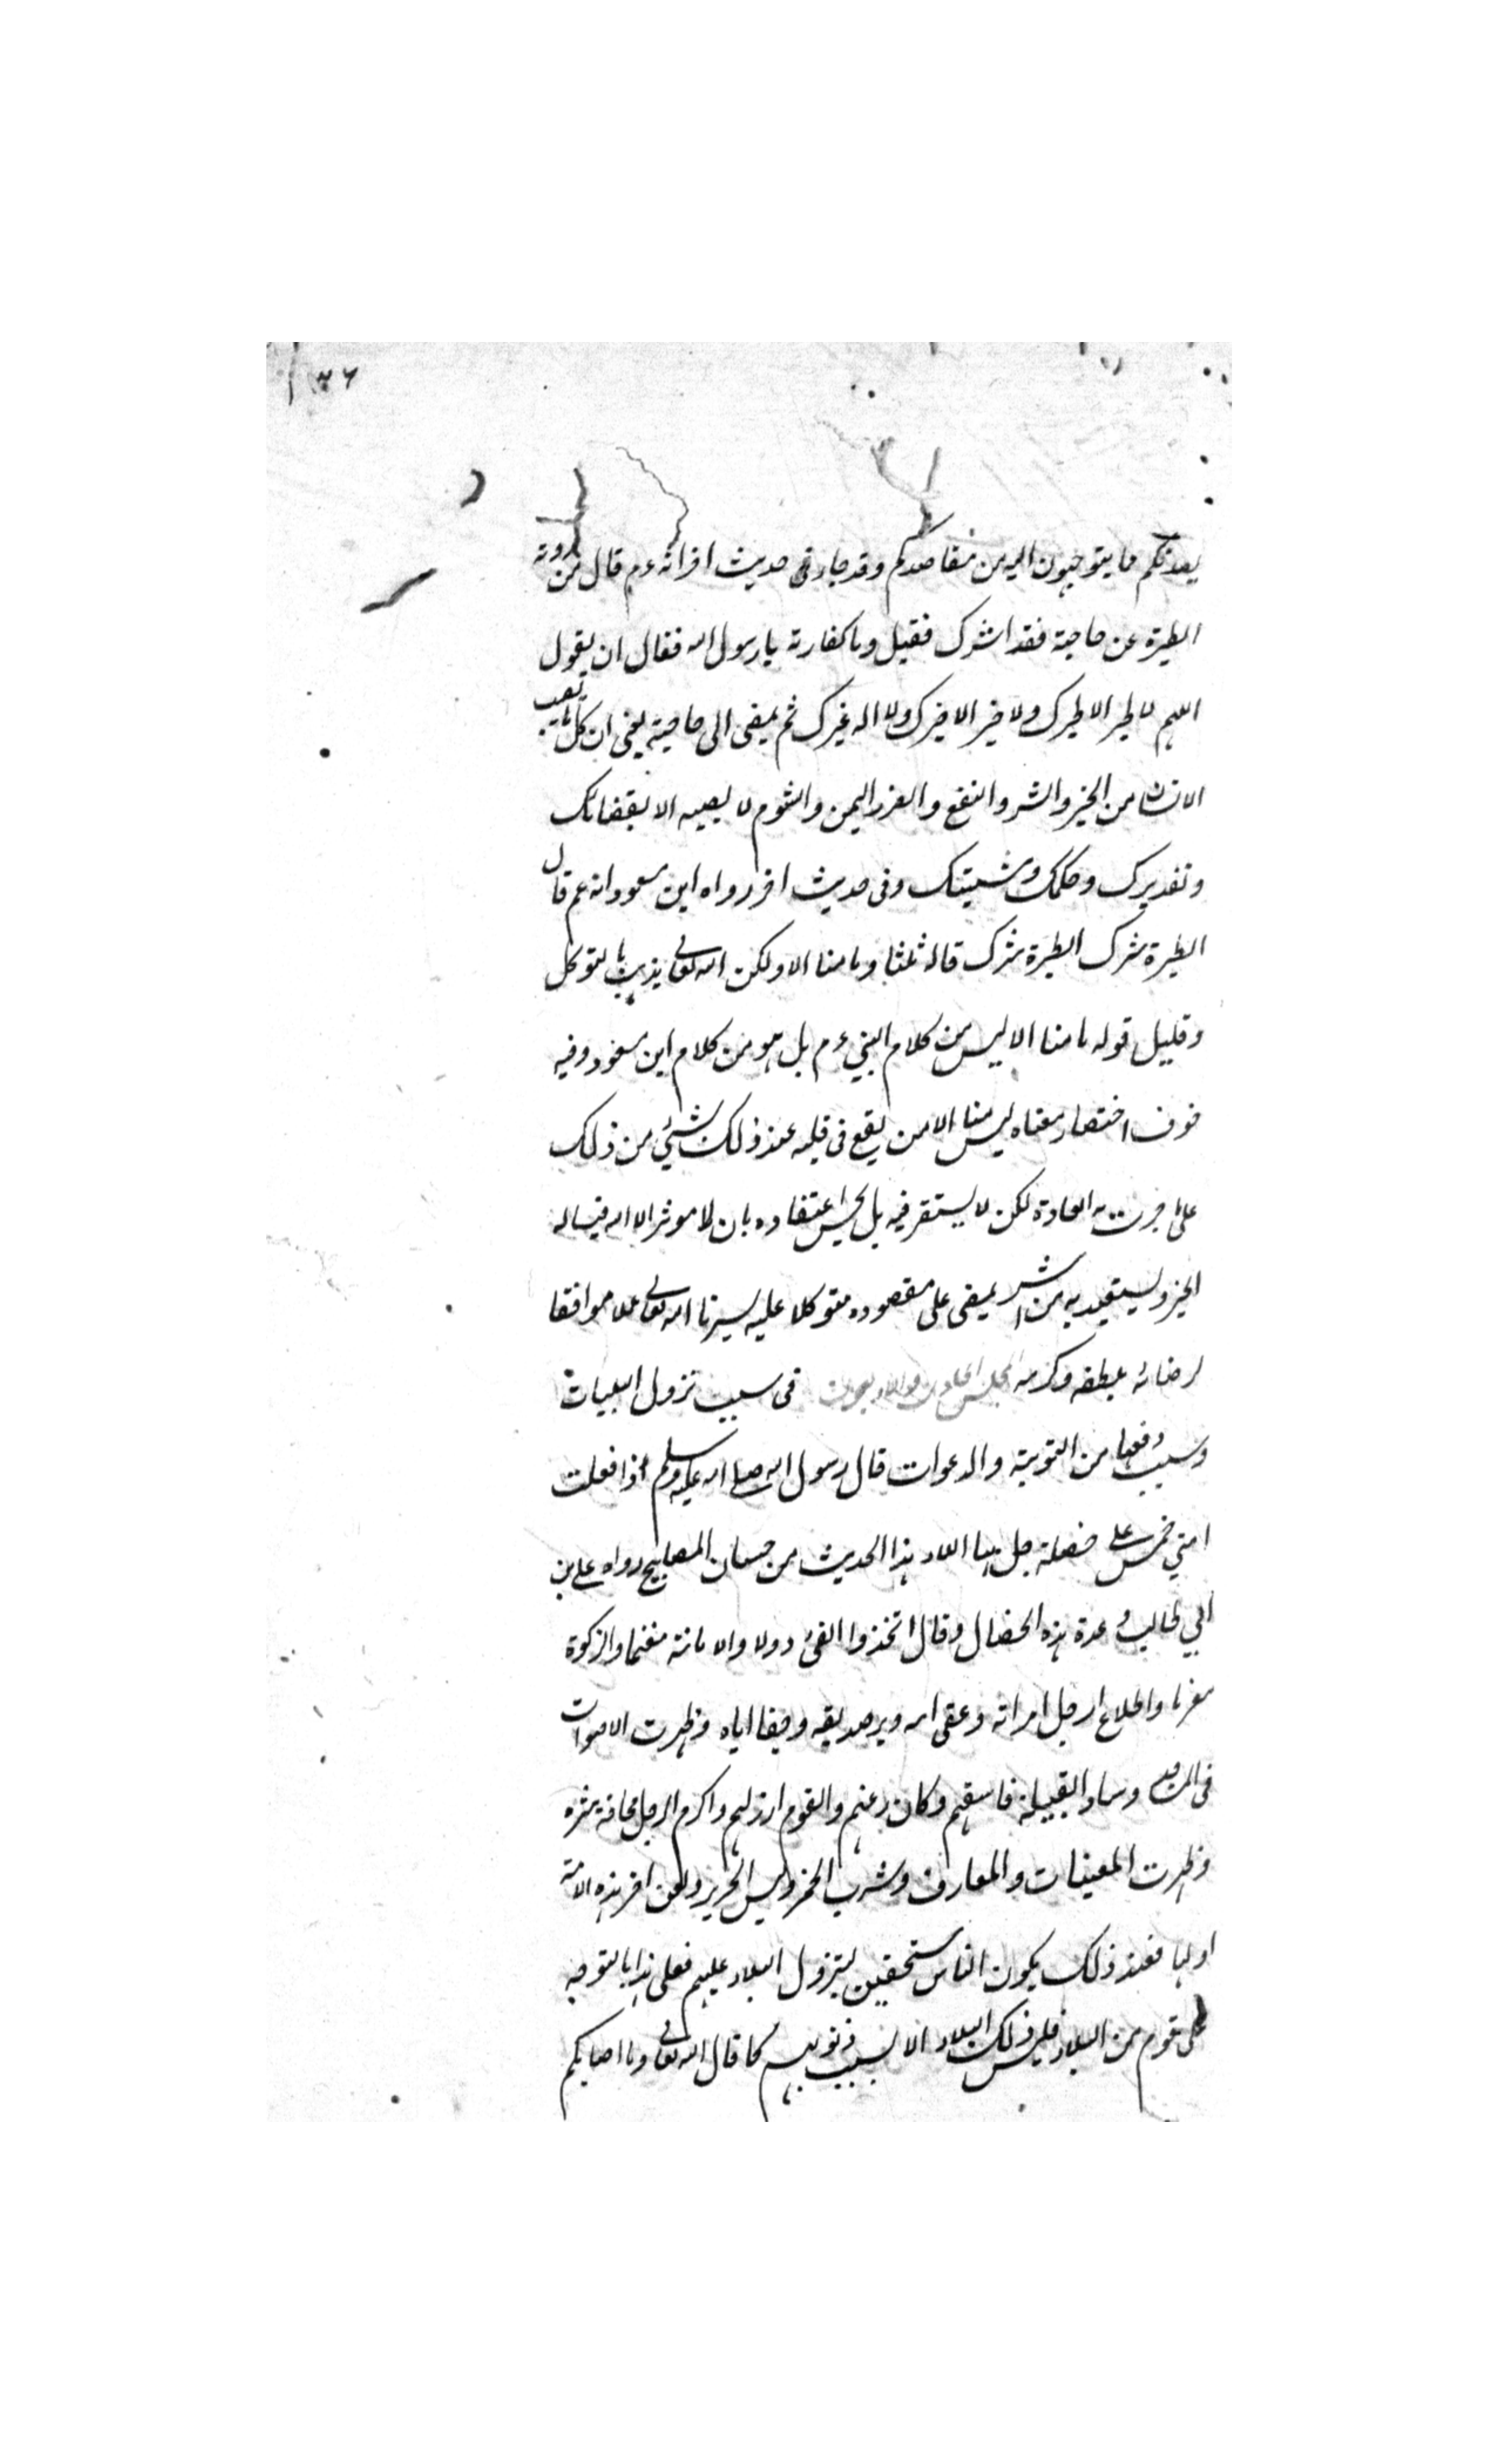 ١٣٦
يصدنكم ما يتوجهون اليه من مقاصدكم وقد جاء فى حديث اخر انه ءم قال من ردته
الطيرة عن حاجة فقد اشرك فقيل وما كفارته يا رسول الله فقال ان يقول
اللهم لا طير الا طيرك ولا خير الا خيرك ولا اله غيرك ثم يمضى الى حاجته يعنى ان كل ما يصيب
الانسان من الخير والشر والنفع والضر واليمن والشوم لا يصيبه الا بقضائك
وتقديرك وحكمك ومشيتك وفى حديث اخر رواه ابن مسعود انه عم قال
الطيرة شرك الطيرة شرك قاله ثلثا وما منا الا ولكن الله تعالى يذهب بالتوكل
وقيل قوله ما منا الا ليس من كلام النبي ءم بل هو من كلام ابن مسعود وفيه
اختصار معناه ليس منا الا من يقع فى قلبه عند ذلك شيئ من ذلك
على ما جرت به العادة لكن لا يستقر فيه بل يحسن اعتقاده بان لا موثر الا الله فيساله
الخير ويستعيذ به من الشر يمضى على مقصوده متوكلا عليه يسرنا الله تعالى عملا موافقا
لرضائه بلطفه وكرمه المجلس الحادى والاربعون فى سبب نزول البليات
وسبب دفعها من التوبة والدعوات قال رسول الله صلى الله عليه وسلم اذا فعلت
امتي خمس على خصلة حل بها البلاء هذا الحديث من حسان المصابيح رواه على بن
ابي طالب و عدة هذه الخصال وقال اتخذوا الفئ دولا والامانة مغنما والزكوة
مغرما واطاع الرجل امراته وعق امه وبر صديقه وجفا اباه وظهرت الاصوات
فى المساجد وساد القبيلة فاسقهم وكان زعيم القوم ارذلهم واكرم الرجل مخافة شره
وظهرت المغنيات والمعازف وشرب الخمر ولبس الحرير ولعن اخر هذه الامة
اولها فعند ذلك يكون الناس مستحقين لنزول البلاء عليهم فعلى هذا بالتوجه
على قوم من البلاء فليس ذلك البلاء الا بسبب ذنوبهم كما قال الله تعالى وما اصابكم